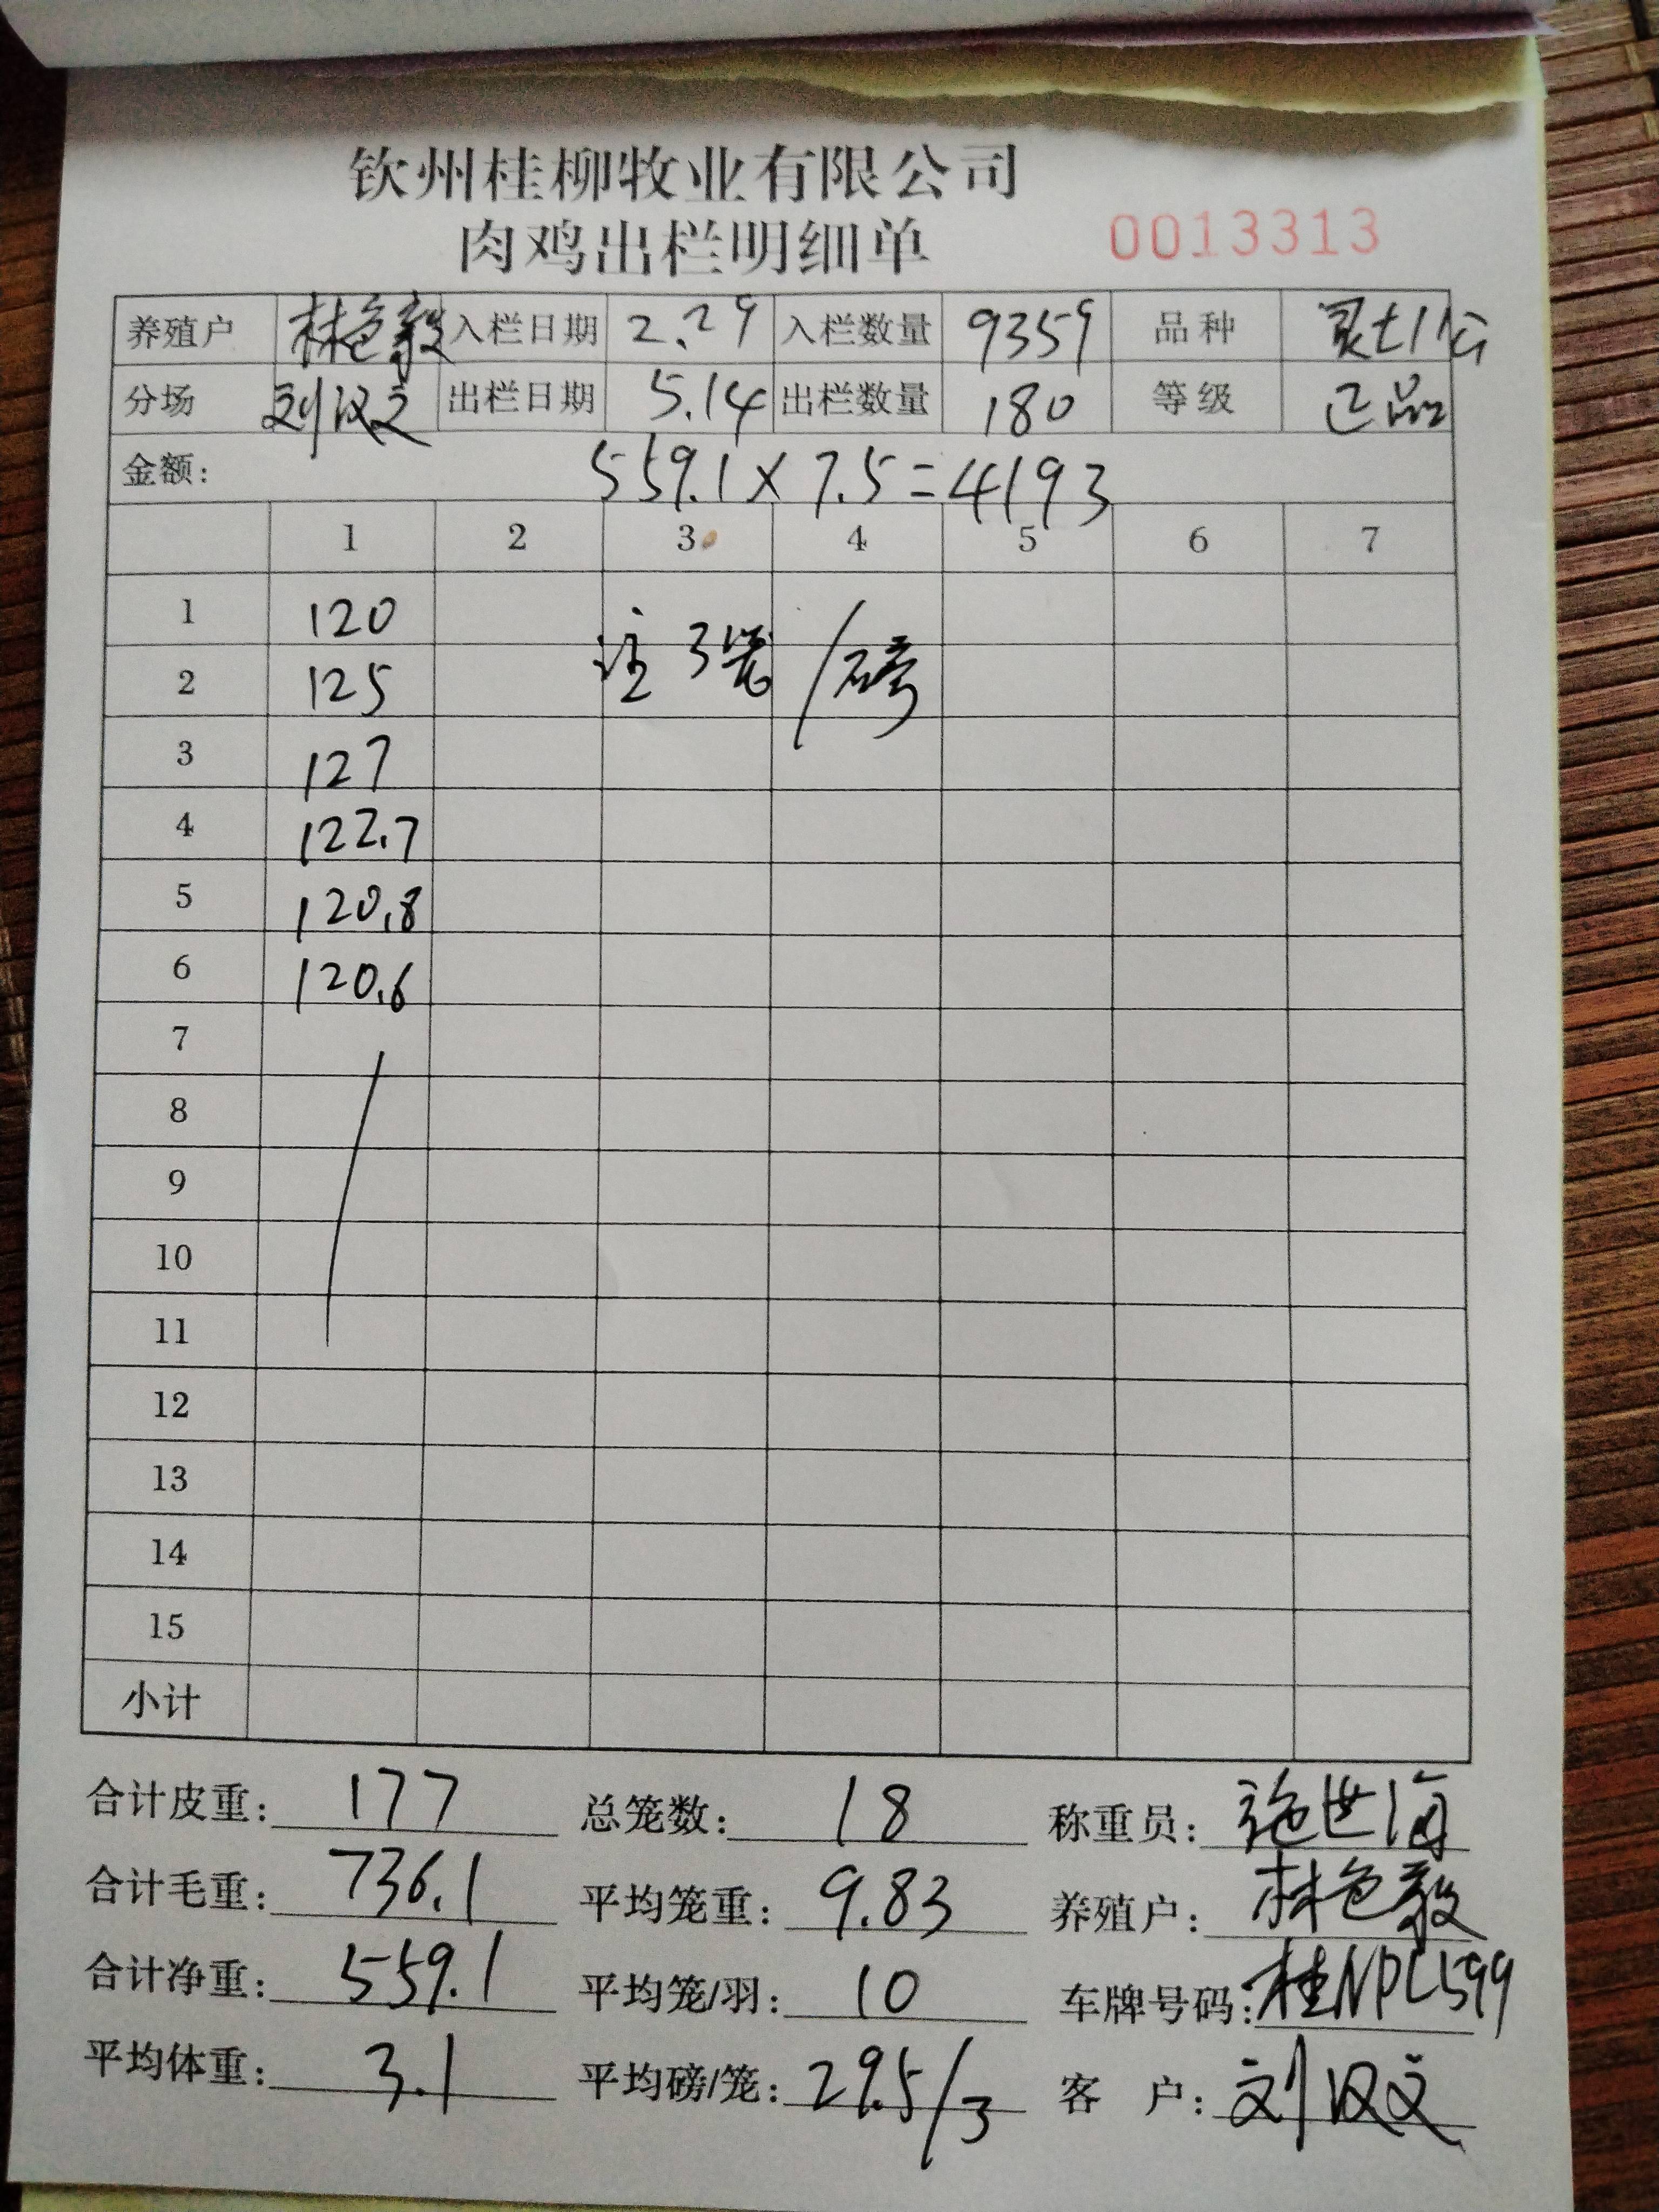 钦州桂柳牧业有限公司
肉鸡出栏明细单 0013313
养殖户 林色毅 入栏日期 2.29 入栏数量 9359 品种
分场 刘汉文 出栏日期 5.14 出栏数量 180 等级 正品
金额: 559.1×7.5=4193
1 2 3 4 5 6 7
1 120 注 3笼/磅
2 125
3 127
4 122.7
5 120.8
6 120.6
7
8
9
10
11
12
13
14
15
小计
合计皮重: 177 总笼数: 18 称重员: 施世海
合计毛重: 736.1 平均笼重: 9.83 养殖户: 林色毅
合计净重: 559.1 平均笼/羽: 10 车牌号码: 桂NPL599
平均体重: 3.1 平均磅/笼: 29.5/3 客户: 刘汉文